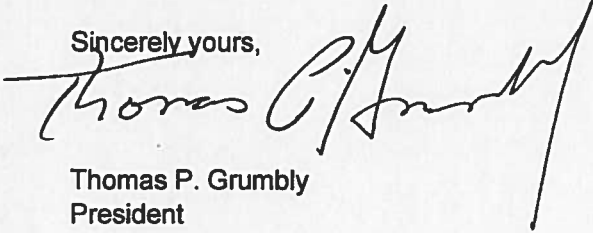 Sincerely yours,
Thomas P. Grumbly
Thomas P. Grumbly
President